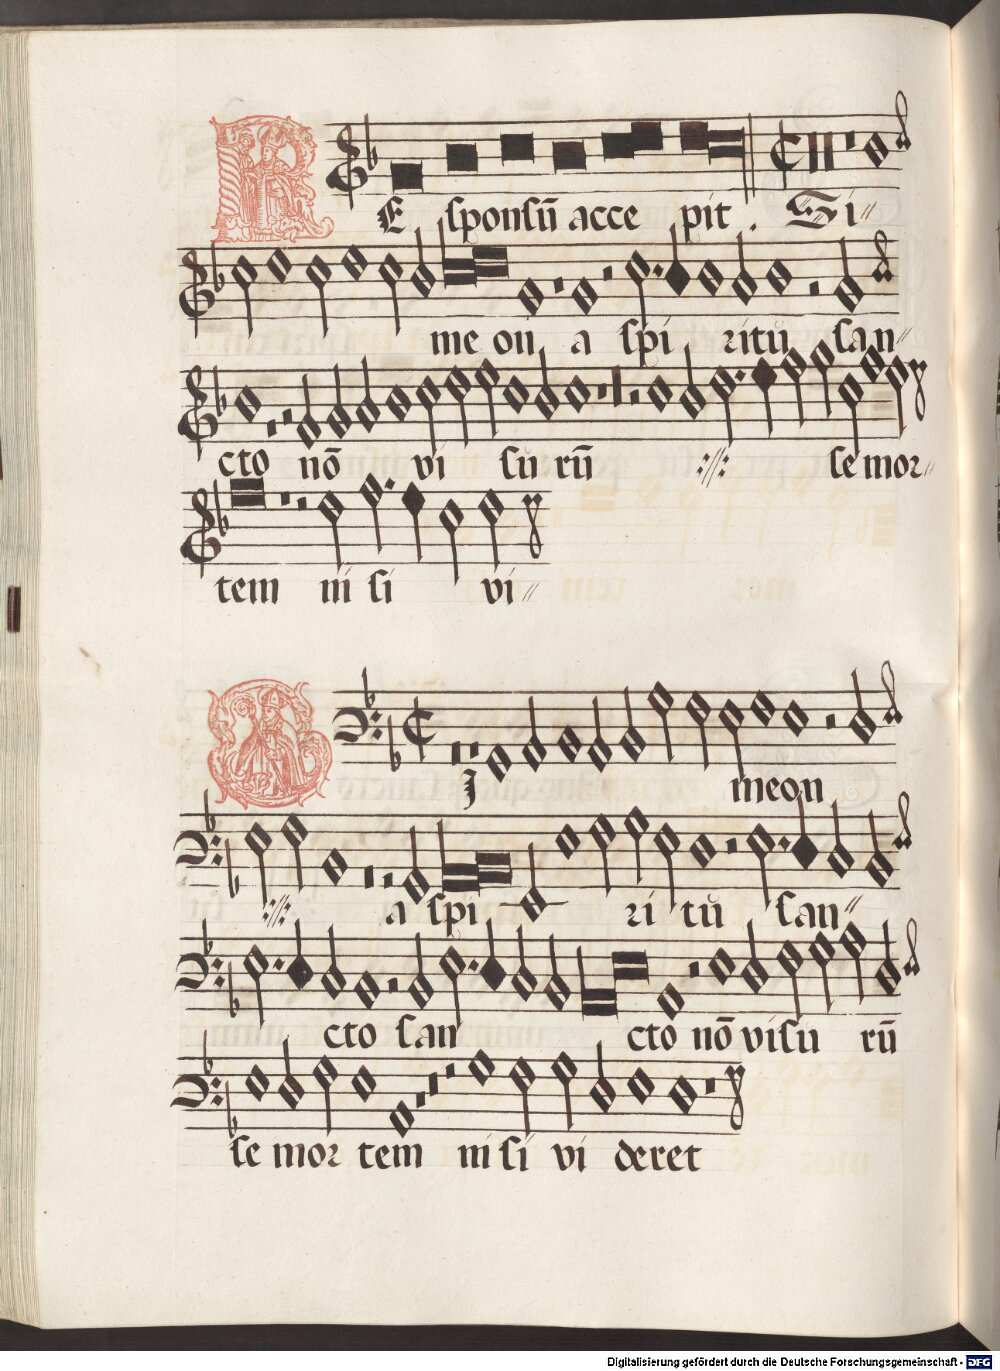 RE sponsū acce pit . Si//
me on a spi ritū san//
cto nō vi su rū ://: se mor//
tem ni si vi//
S I meon
:// : a spi ri tū san//
cto san cto nō visu rū
se mor tem ni si vi deret
Digitalisierung gefördert durch die Deutsche Forschungsgemeinschaft - DFG